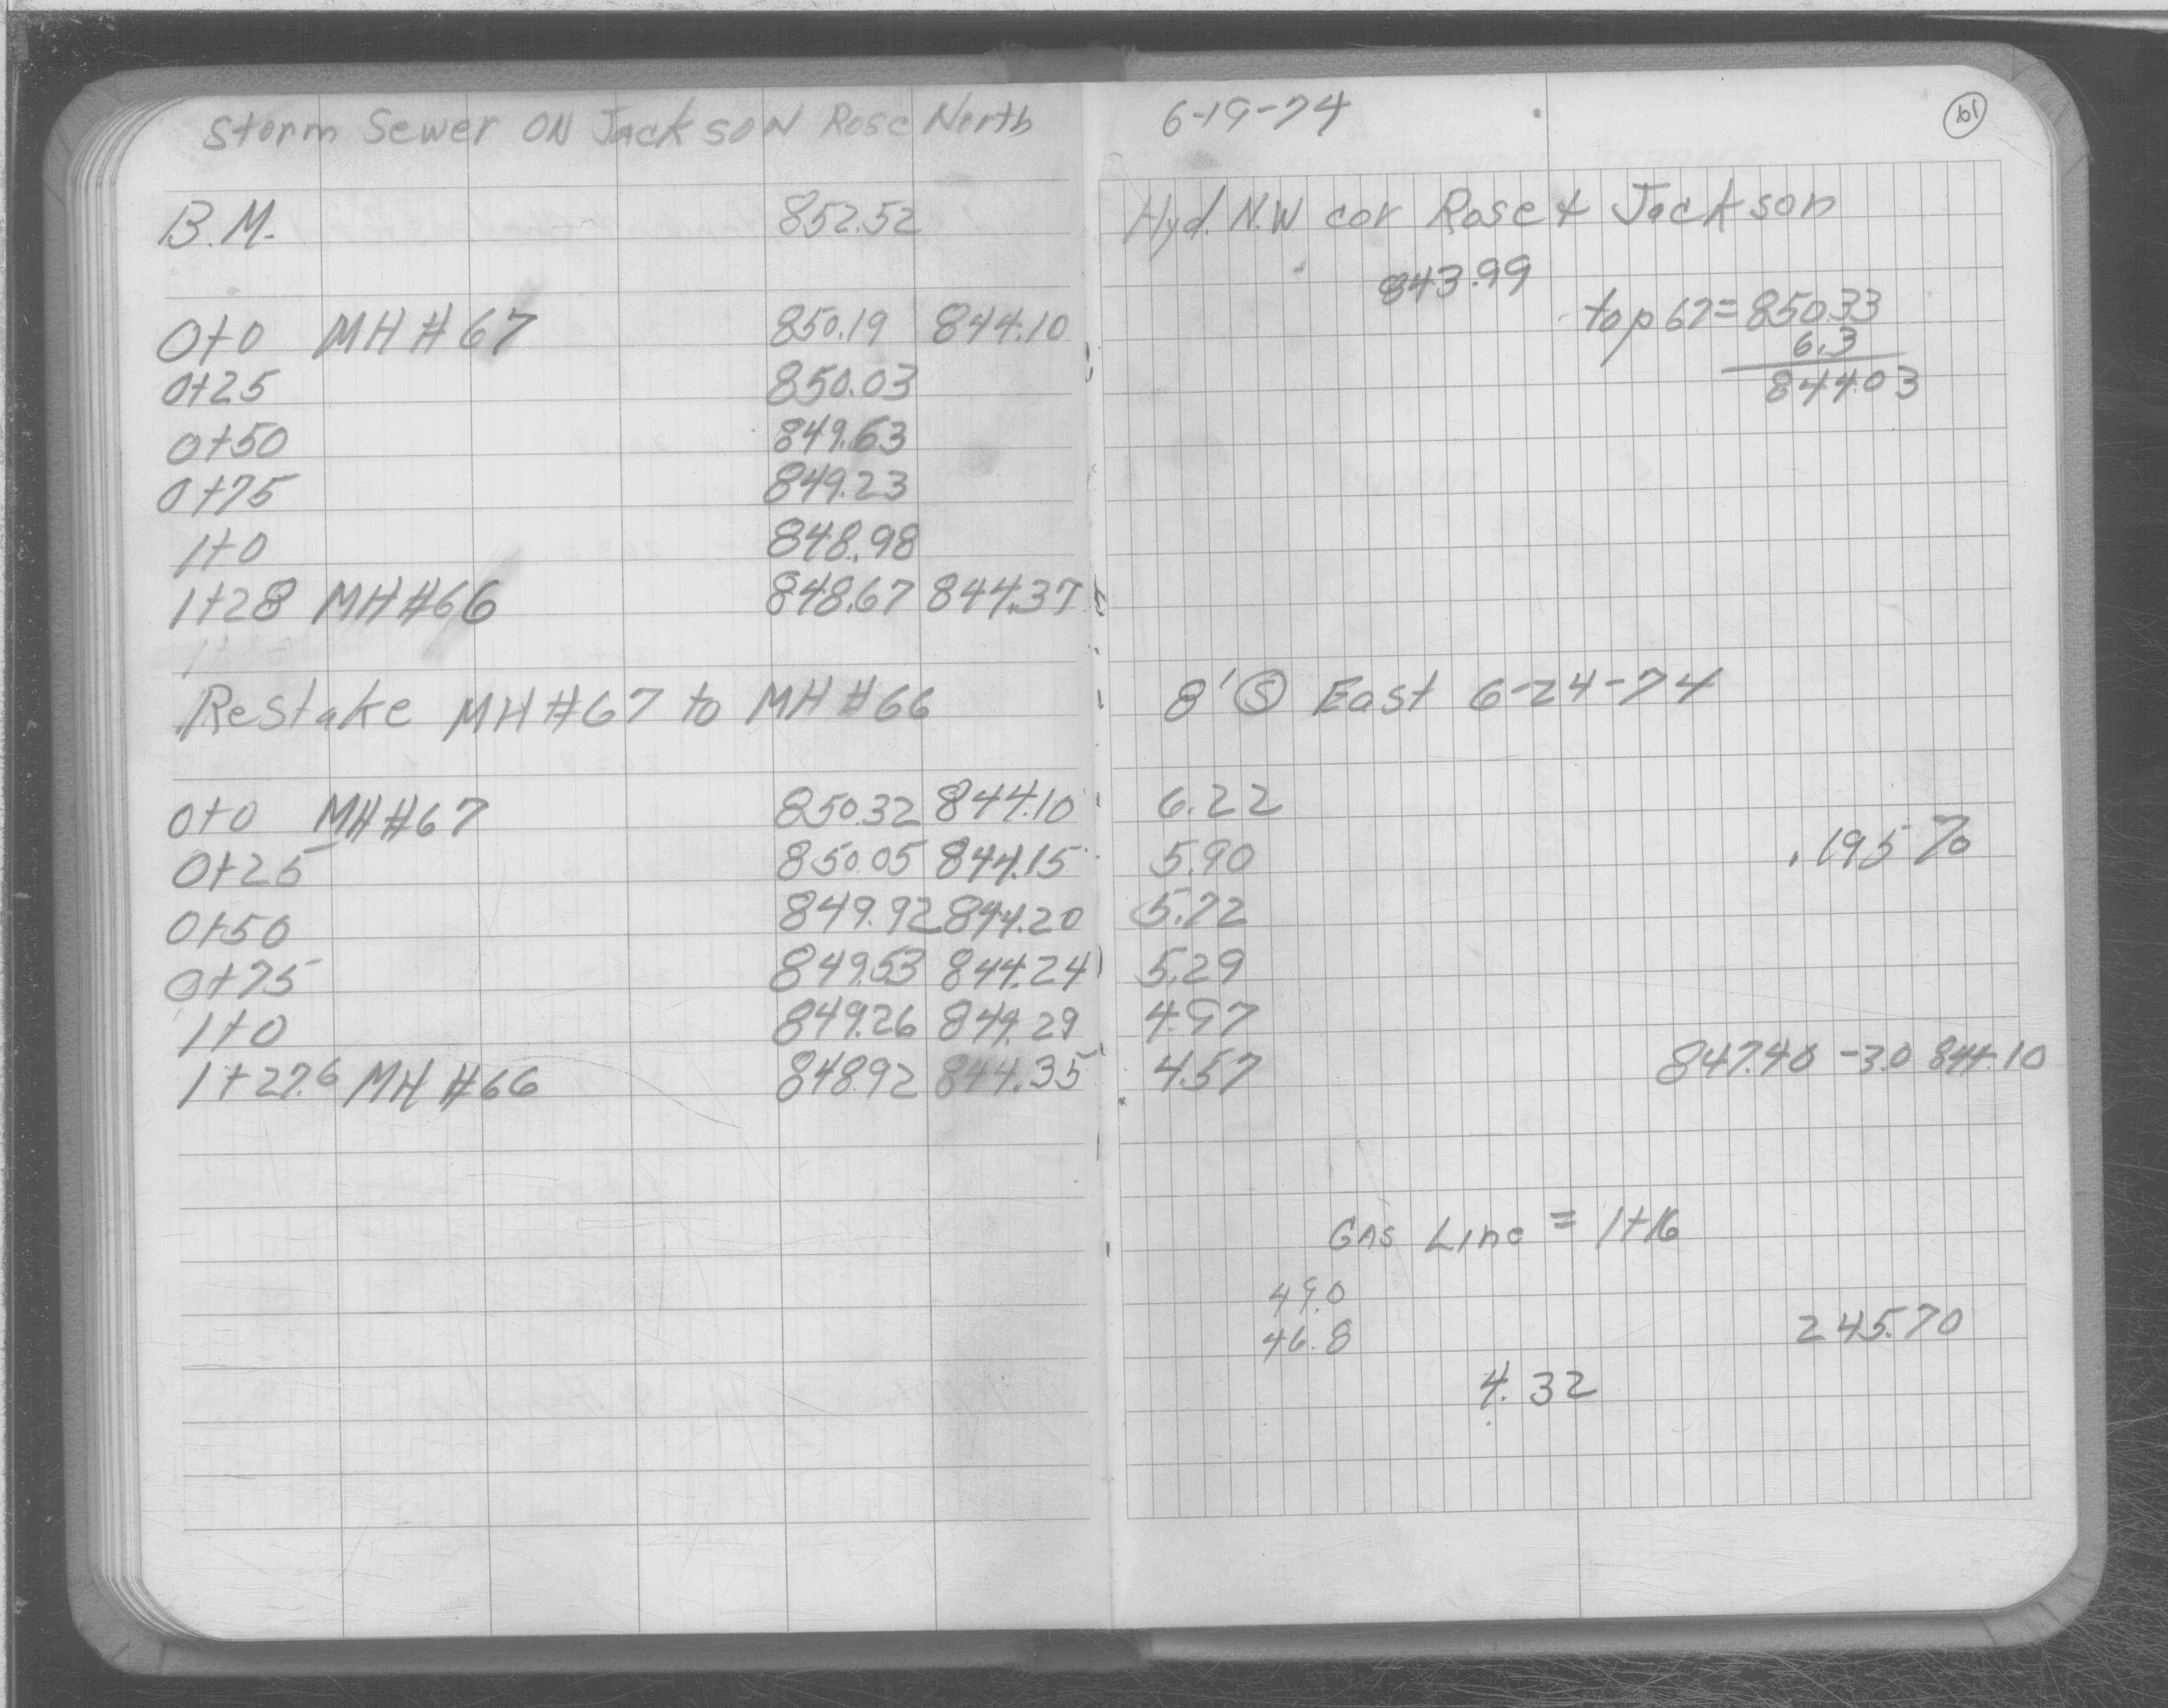 Storm Sewer ON Jackson Rose North
B.M. 852.52
0+0 MH #67 850.19 844.10
0+25 850.03
0+50 849.63
0+75 849.23
1+0 848.98
1+28 MH #66 848.67 844.37
Restake MH #67 to MH #66
0+0 MH #67 850.32 844.10
0+25 850.05 844.15
0+50 849.92 844.20
0+75 849.53 844.24
1+0 849.26 844.29
1+27.6 MH #66 848.92 844.35
6-19-74
Hyd. N.W cor Rose + Jackson
843.99
top 67=850.33
6.3
844.03
8' Ⓢ East 6-24-74
6.22
.195 %
5.90
5.72
5.29
4.97
4.57 847.40 -3.0 844.10
Gas Line = 1+16
49.0
46.8
245.70
4.32